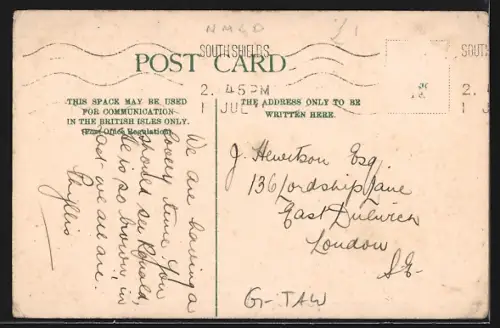 NMGD
£1
SOUTH SHIELDS
2. 45PM
1 JUL
SOUTH
2. 4
1
POST CARD
THIS SPACE MAY BE USED
FOR COMMUNICATION
IN THE BRITISH ISLES ONLY.
(Post Office Regulation).
THE ADDRESS ONLY TO BE
WRITTEN HERE.
We are having a
lovely time you
should see Reynold,
he is so brown, in
fact we all are.
Phyllis
J. Hewitson Esq
136 Lordship Lane
East Dulwich
London
S.E.
Gr-TAW